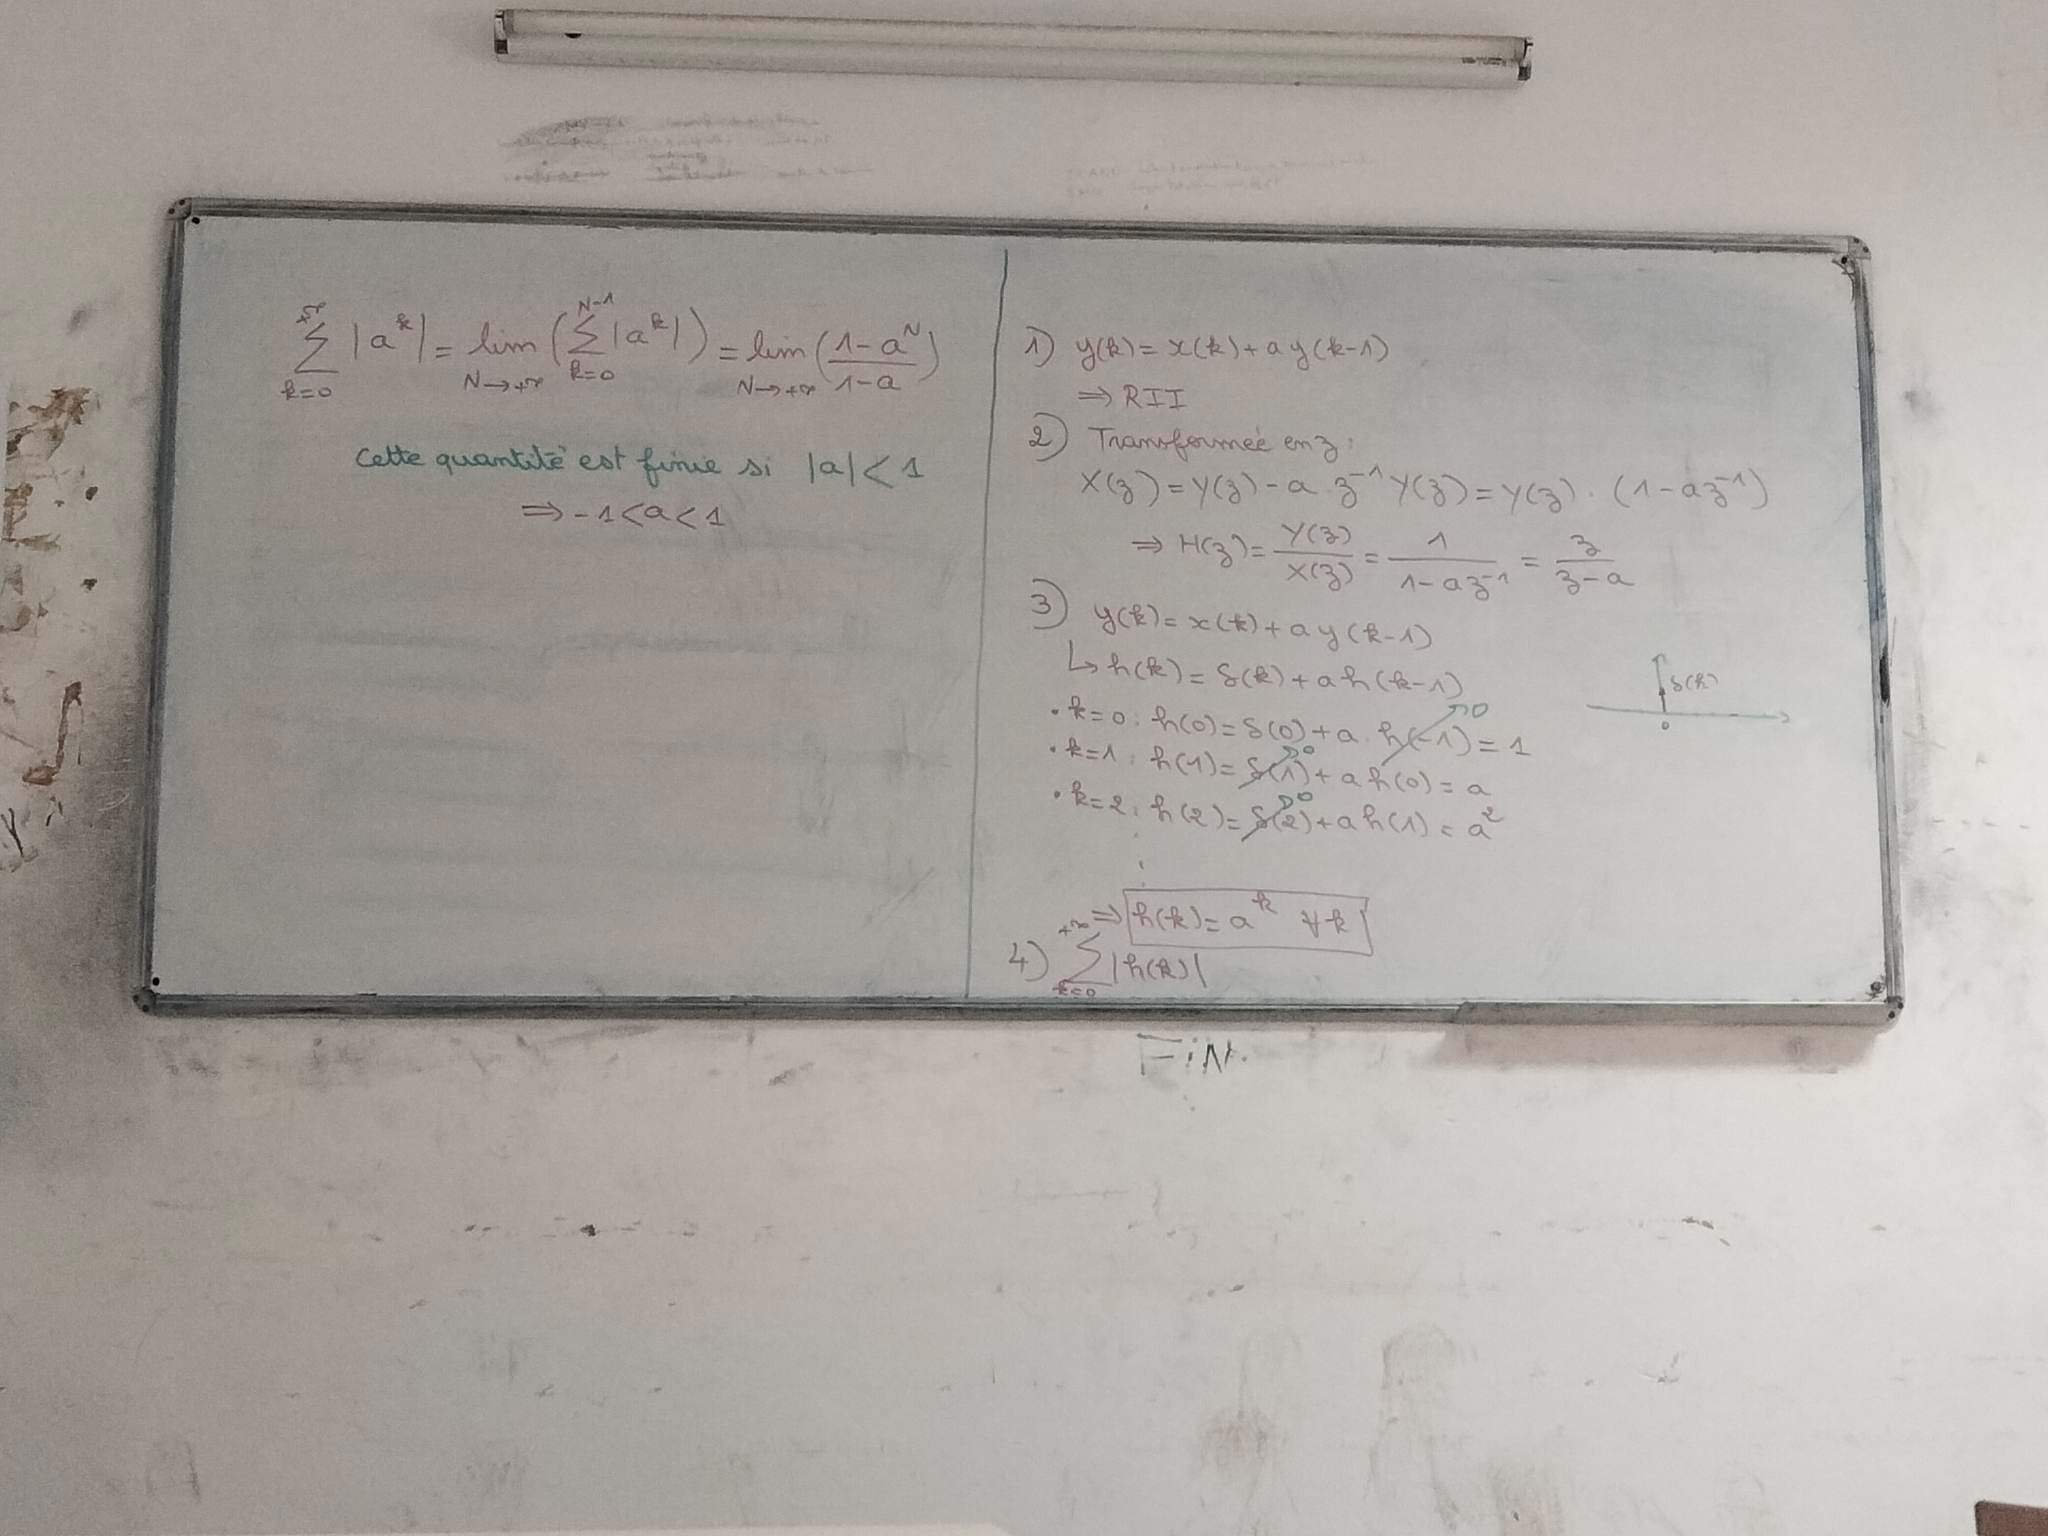 +∞
∑ |a^k| = lim (∑ |a^k|) = lim (1-a^N / 1-a)
k=0 N→+∞ k=0 N-1 N→+∞
Cette quantité est finie si |a| < 1
⇒ -1 < a < 1
1) y(k) = x(k) + a y(k-1)
⇒ RII
2) Transformée en z :
X(z) = Y(z) - a . z^-1 Y(z) = Y(z) . (1 - a z^-1)
⇒ H(z) = Y(z) / X(z) = 1 / 1 - a z^-1 = z / z - a
3) y(k) = x(k) + a y(k-1)
↳ h(k) = δ(k) + a h(k-1)
δ(k)
0
• k=0 : h(0) = δ(0) + a . h(-1) →0 = 1
• k=1 : h(1) = δ(1) →0 + a h(0) = a
• k=2 : h(2) = δ(2) →0 + a h(1) = a^2
⇒ h(k) = a^k ∀ k
4) +∞ ∑ k=0 |h(k)|
FiN.